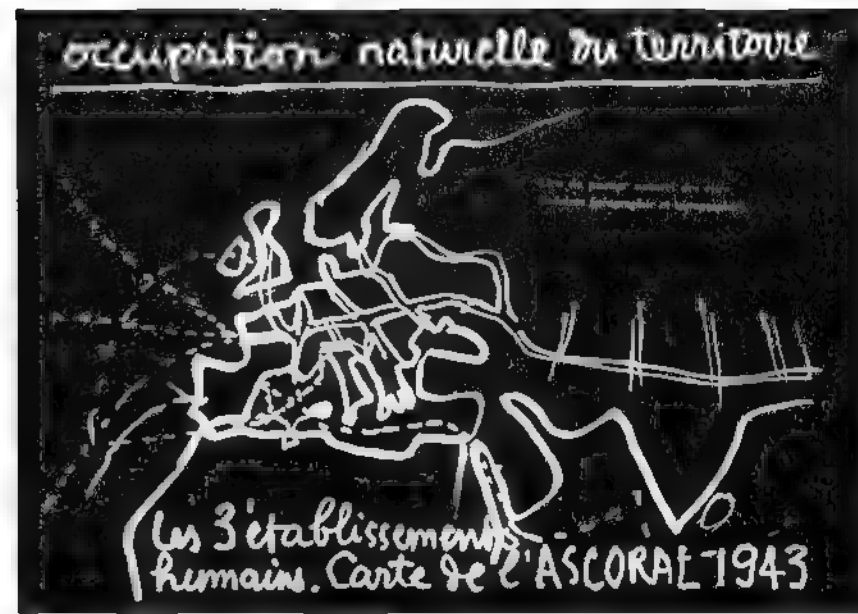 occupation naturelle du territoire
les 3 établissements
humains. Carte de l'ASCORAL 1943